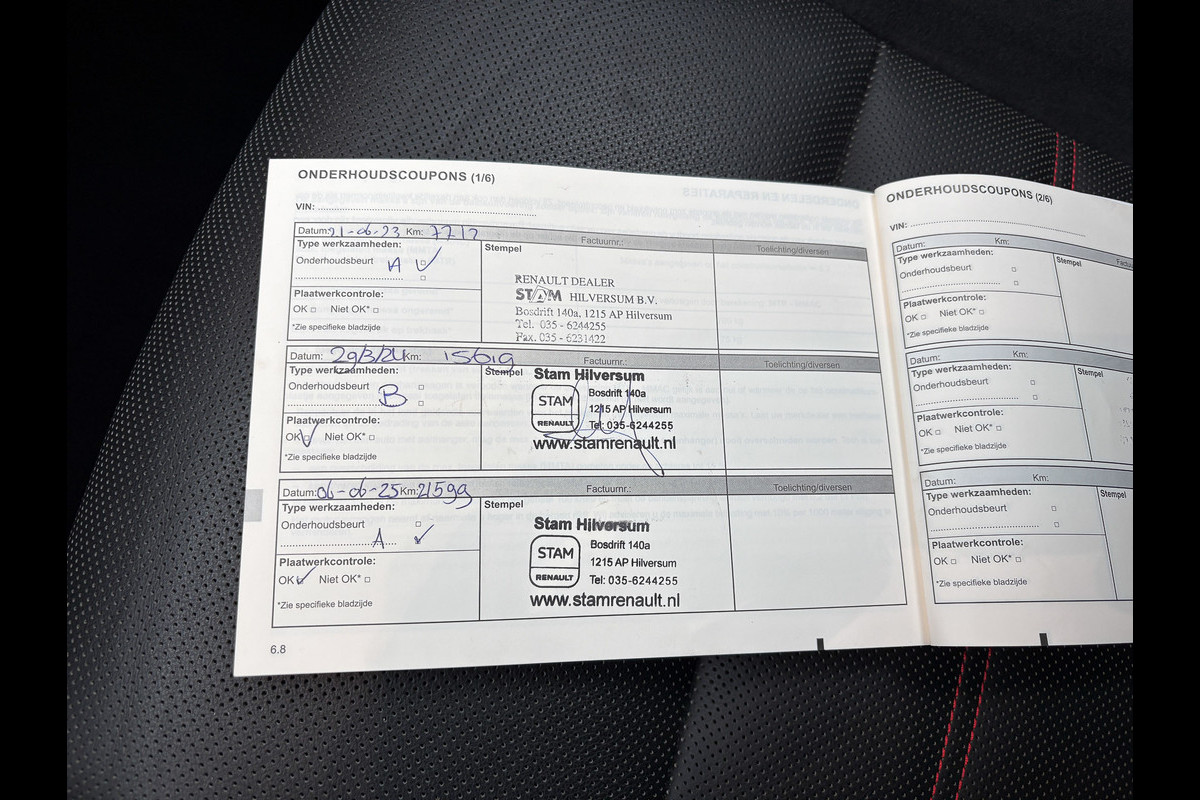 ONDERHOUDSCOUPONS (1/6)
VIN:
Datum: 21-06-23 Km: 7717
Type werkzaamheden:
Onderhoudsbeurt A
Plaatwerkcontrole:
OK Niet OK*
*Zie specifieke bladzijde
Stempel
Factuurnr.:
Toelichting/diversen
RENAULT DEALER
STAM HILVERSUM B.V.
Bosdrift 140a, 1215 AP Hilversum
Tel. 035 - 6244255
Fax. 035 - 6231422
Datum: 29/3/24 Km: 15619
Type werkzaamheden:
Onderhoudsbeurt
B
Plaatwerkcontrole:
OK Niet OK*
*Zie specifieke bladzijde
Stempel
Factuurnr.:
Toelichting/diversen
Stam Hilversum
STAM
RENAULT
Bosdrift 140a
1215 AP Hilversum
Tel: 035-6244255
www.stamrenault.nl
Datum: 06-06-25 Km: 21599
Type werkzaamheden:
Onderhoudsbeurt
A
Plaatwerkcontrole:
OK Niet OK*
*Zie specifieke bladzijde
Stempel
Factuurnr.:
Toelichting/diversen
Stam Hilversum
STAM
RENAULT
Bosdrift 140a
1215 AP Hilversum
Tel: 035-6244255
www.stamrenault.nl
6.8
ONDERHOUDSCOUPONS (2/6)
VIN:
Datum: Km:
Type werkzaamheden:
Onderhoudsbeurt
Plaatwerkcontrole:
OK Niet OK*
*Zie specifieke bladzijde
Stempel
Datum: Km:
Type werkzaamheden:
Onderhoudsbeurt
Plaatwerkcontrole:
OK Niet OK*
*Zie specifieke bladzijde
Stempel
Datum: Km:
Type werkzaamheden:
Onderhoudsbeurt
Plaatwerkcontrole:
OK Niet OK*
*Zie specifieke bladzijde
Stempel